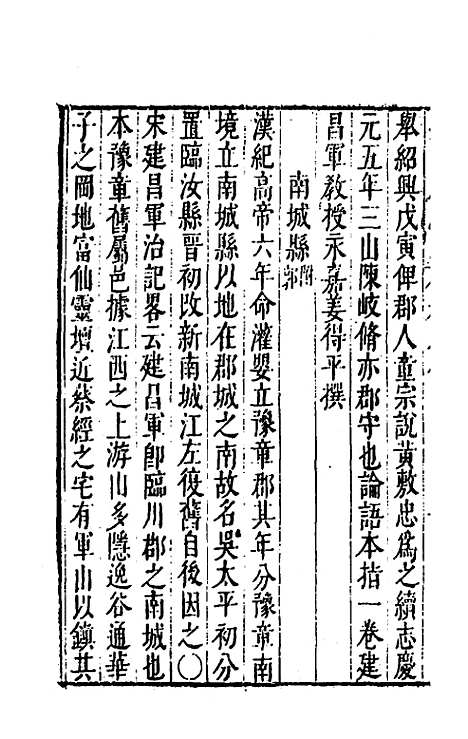 舉紹興戊寅俾郡人童宗說黃敷忠爲之續志慶
元五年三山陳岐脩亦郡守也論語本指一卷建
昌軍教授永嘉姜得平撰
南城縣附郭
漢紀高帝六年命灌嬰立豫章郡其年分豫章南
境立南城縣以地在郡城之南故名吳太平初分
置臨汝縣晉初改新南城江左復舊自後因之〇
宋建昌軍治記畧云建昌軍卽臨川郡之南城也
本豫章舊屬邑據江西之上游山多隱逸谷通華
子之岡地富仙靈壇近蔡經之宅有軍山以鎮其